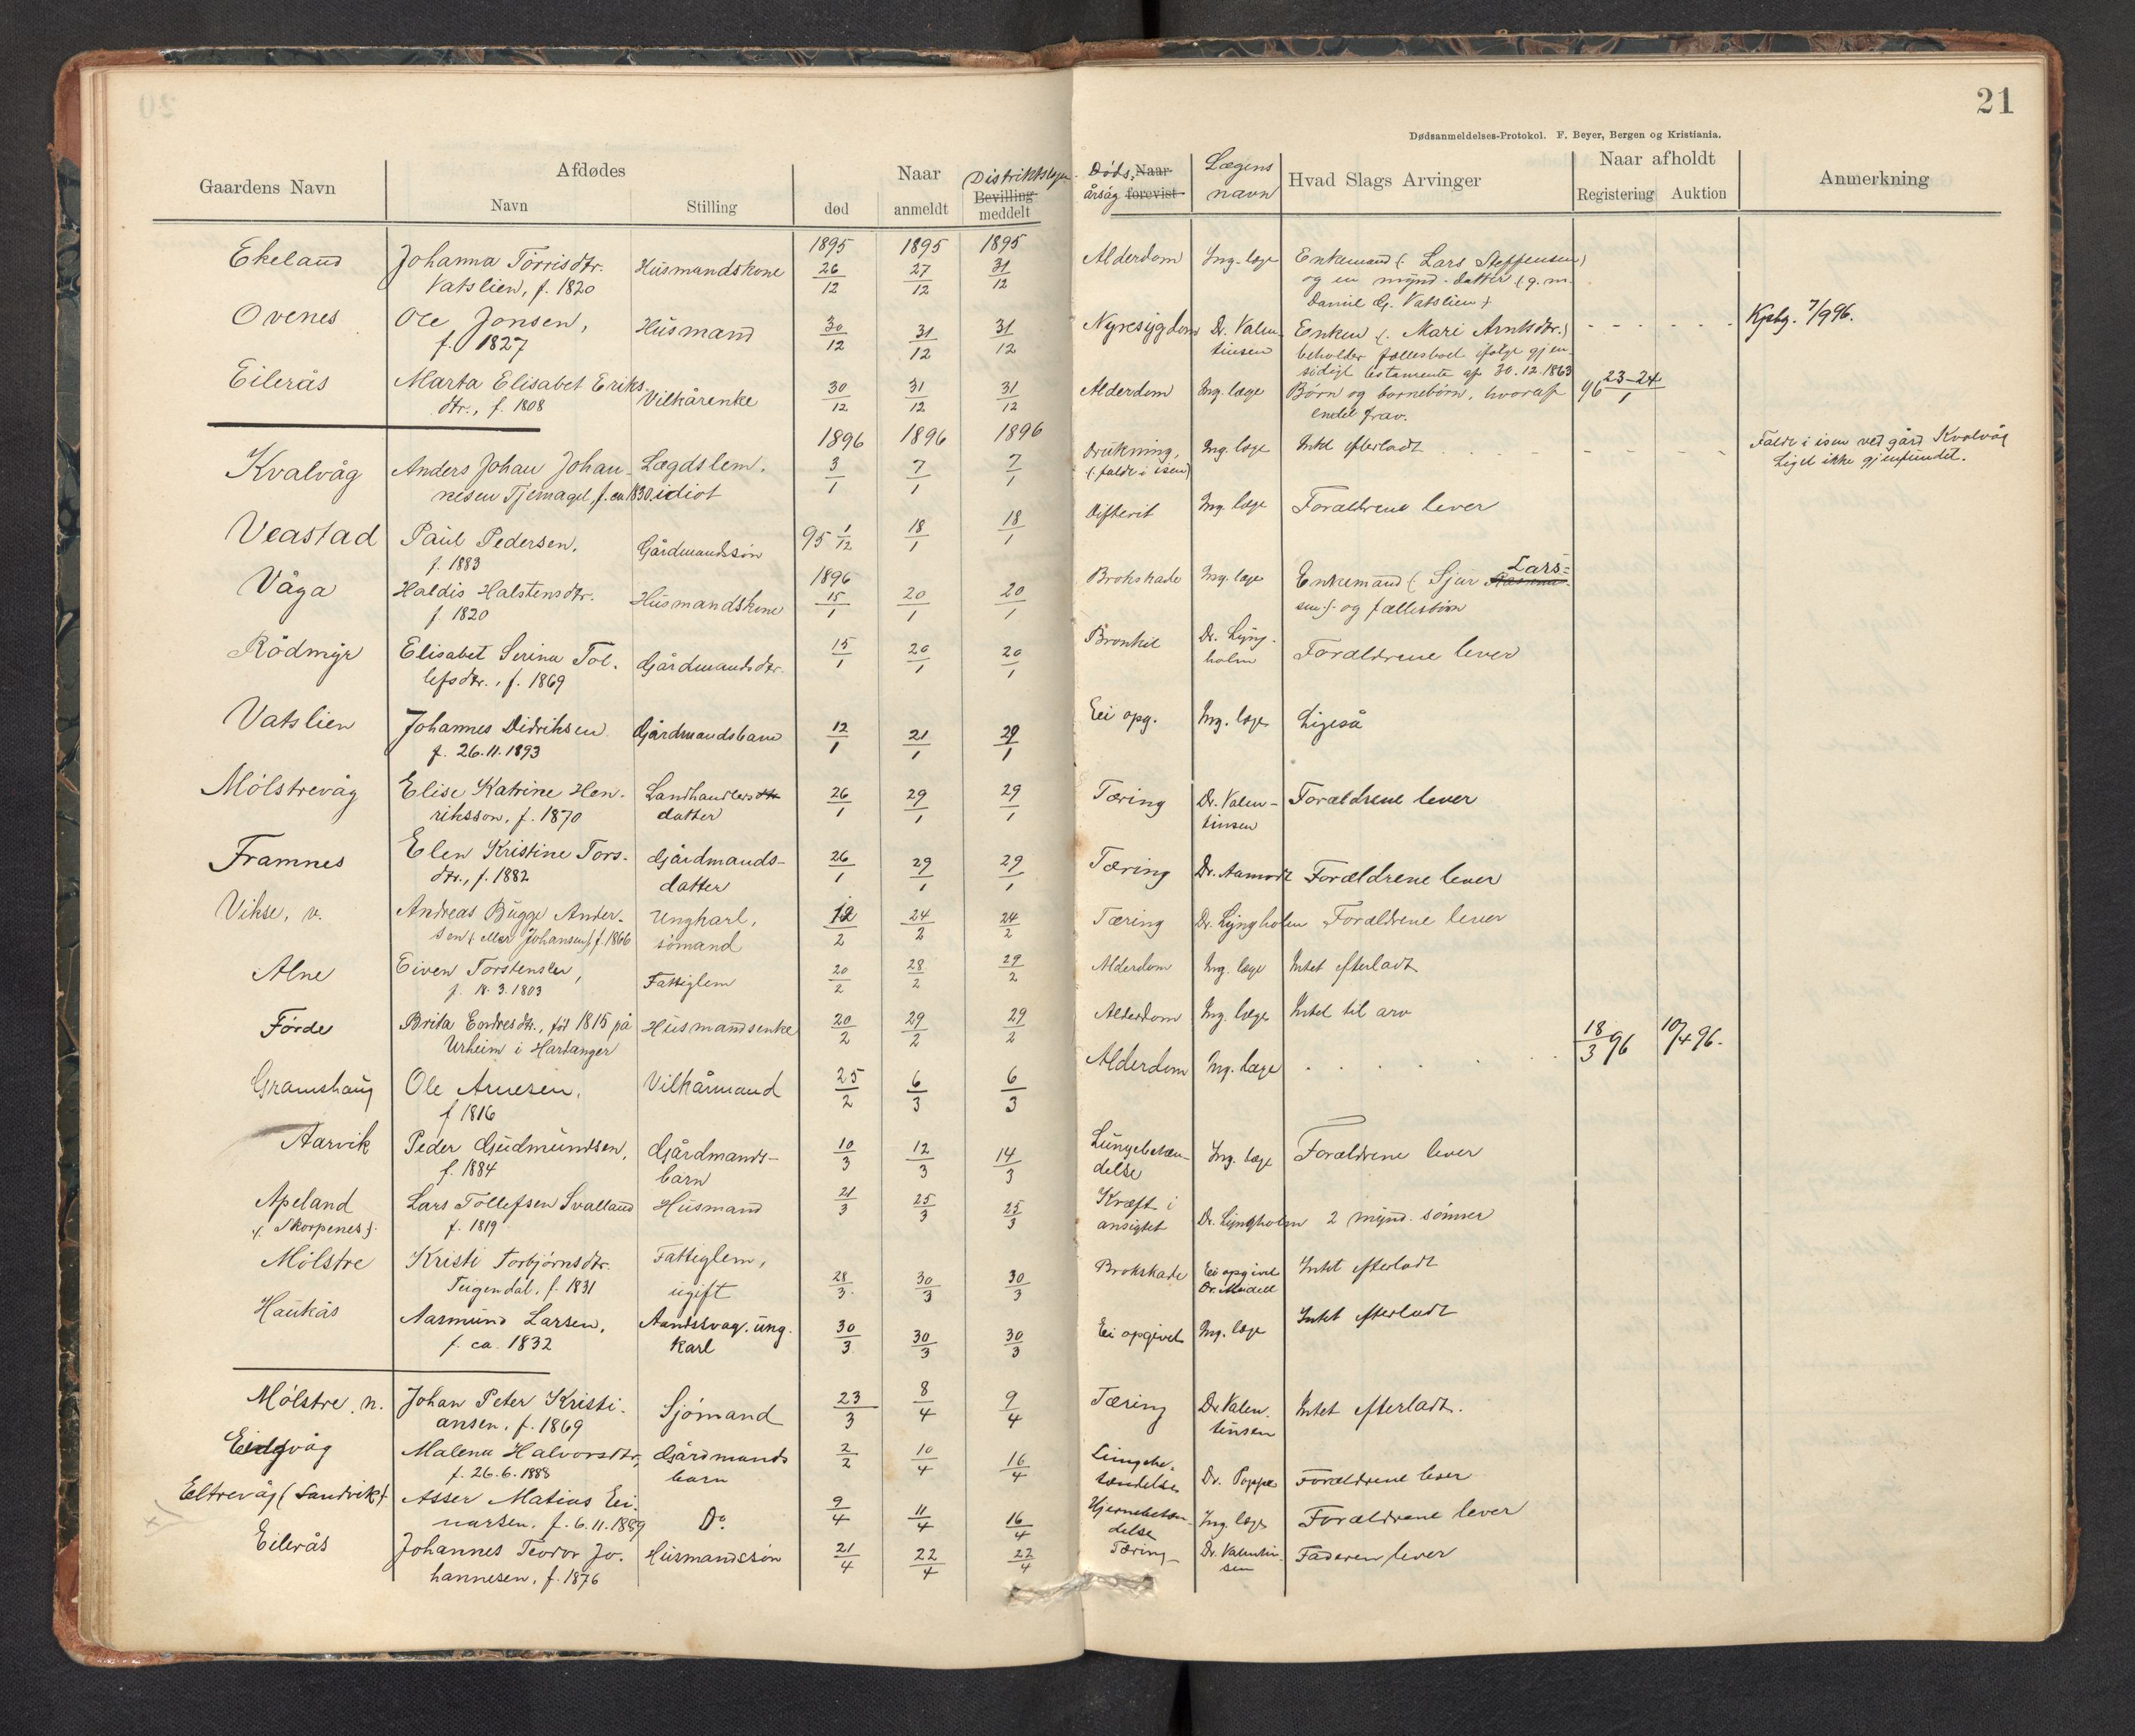 21
Dødsanmeldelses-Protokol. F. Beyer, Bergen og Kristiania.
Gaardens Navn
Afdødes
Navn
Stilling
Naar
død
anmeldt
Distriktslægen
Bevilling
meddelt
Døds- Naar
årsag forevist
Lægens
navn
Hvad Slags Arvinger
Naar afholdt
Registering
Auktion
Anmerkning
1895 1895 1895
Ekeland Johanna Torrisdtr. Husmandskone 26/12 27/12 31/12 Alderdom Ing. læge Enkemand (Lars Steffensen)
Vatslien, f. 1820 og en mynd. datter (g. m.
Daniel G. Vatslien)
Ovenes Ole Jonsen, Husmand 30/12 31/12 31/12 Nyresygdom Dr. Valen- Enken (Mari Arntsdtr.) Kpbg. 7/9 96.
f. 1827 tinsen beholder fællesboet ifølge gjen-
sidigt testamente af 30.12.1863
Eilerås Marta Elisabet Eriks- Vilkårenke 30/12 31/12 31/12 Alderdom Ing. læge Børn og barnebørn, hvoraf 96 23-24/1
dtr., f. 1808 endel frav.
1896 1896 1896
Kvalvåg Anders Johan Johan- Lægdslem, 3/1 7/1 7/1 Drukning, Ing. læge Intet efterladt Faldt i isen ved gård Kvalvåg
nesen Tjernagel, f. ca. 1830. idiot (faldt i isen) Liget ikke gjenfundet.
Veastad Paul Pedersen, Gårdmandssøn 95 1/12 18/1 18/1 Difterit Ing. læge Forældrene lever
f. 1883
1896
Våga Haldis Halstensdtr. Husmandskone 15/1 20/1 20/1 Brokskade Ing. læge Enkemand (Sjur Lars-
f. 1820 sen) og fællesbørn
Rödmyr Elisabet Serina Tol- Gårdmandsdtr. 15/1 20/1 20/1 Bronkit Dr. Lyng- Forældrene lever
lefsdtr., f. 1869 holm
Vatslien Johannes Didriksen Gårdmandsbarn 12/1 21/1 29/1 Eei opg. Ing. læge Ligeså
f. 26.11.1893
Mölstrevåg Elise Katrine Hen- Landhandlers dtr. 26/1 29/1 29/1 Tæring Dr. Valen- Forældrene lever
riksson, f. 1870 datter tinsen
Framnes Elen Kristine Tors- Gårdmands- 26/1 29/1 29/1 Tæring Dr. Aamodt Forældrene lever
dtr., f. 1882 datter
Vikse, v. Andreas Bugge Ander- Ungkarl, 12/2 24/2 24/2 Tæring Dr. Lyngholm Forældrene lever
sen (eller Johansen) f. 1866 sömand
Alne Eiven Torstensen, Fattiglem 20/2 28/2 29/2 Alderdom Ing. læge Intet efterladt
f. 18.3.1803
Förde Brita Endresdtr., föt 1815 på Husmandsenke 20/2 29/2 29/2 Alderdom Ing. læge Intet til arv
Urheim i Hardanger
Gramshaug Ole Arnesen, Vilkårmand 25/2 6/3 6/3 Alderdom Ing. læge 18/3 96 10/4 96.
f. 1816
Aarvik Peder Gudmundsen, Gårdmands- 10/3 12/3 14/3 Lungebetæn- Ing. læge Forældrene lever
f. 1884 barn delse
Apeland Lars Tollefsen Svalland Husmand 21/3 25/3 25/3 Kræft i Dr. Lyngholm 2 mynd. sönner
(Skorpenes) f. 1819 ansigtet
Mölstre Kristi Torbjørnsdtr. Fattiglem, 28/3 30/3 30/3 Brokskade Eei opgivet Intet efterladt
Teigendal, f. 1831 ugift Dr. Meidell
Haukås Aasmund Larsen, Aandssvag, ung- 30/3 30/3 30/3 Eei opgivet Ing. læge Intet efterladt
f. ca. 1832 karl
Mölstre, n. Johan Peter Kristi- Sjömand 23/3 8/4 9/4 Tæring Dr. Valen- Intet efterladt.
ansen, f. 1869 tinsen
Eidsvåg Malena Halvorsdtr, Gårdmands 2/2 10/4 16/4 Lungebe- Dr. Poppe Forældrene lever
f. 26.6.1888 barn tændelse
Eltrevåg (Sandvik) Asser Matias Ei- Do. 9/4 11/4 16/4 Hjernebetæn- Ing. læge Forældrene lever
narsen, f. 6.11.1889 delse
Eilerås Johannes Teodor Jo- Husmandssön 21/4 22/4 22/4 Tæring Dr. Valentin- Faderen lever
hannesen, f. 1876 sen